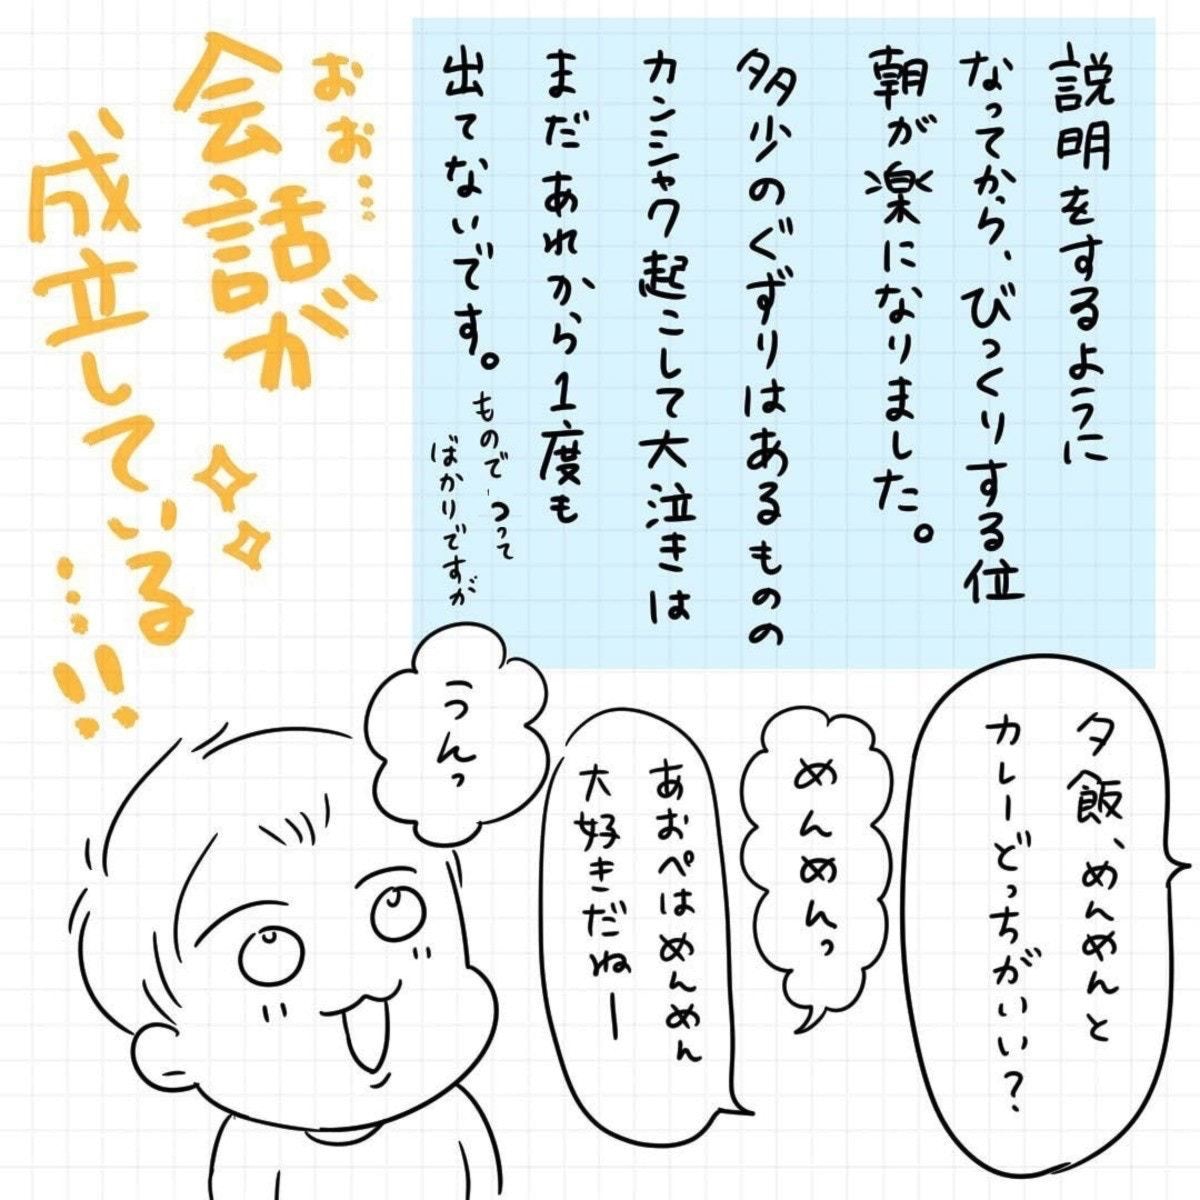 説明をするように
なってから、びっくりする位
朝が楽になりました。
多少のぐずりはあるものの
カンシャク起こして大泣きは
まだあれから1度も
出てないです。
ものでつって
ばかりですが
おお…
会話が
成立している
…!!
夕飯、めんめんと
カレーどっちがいい?
めんめんっ
あおぺはめんめん
大好きだねー
うんっ